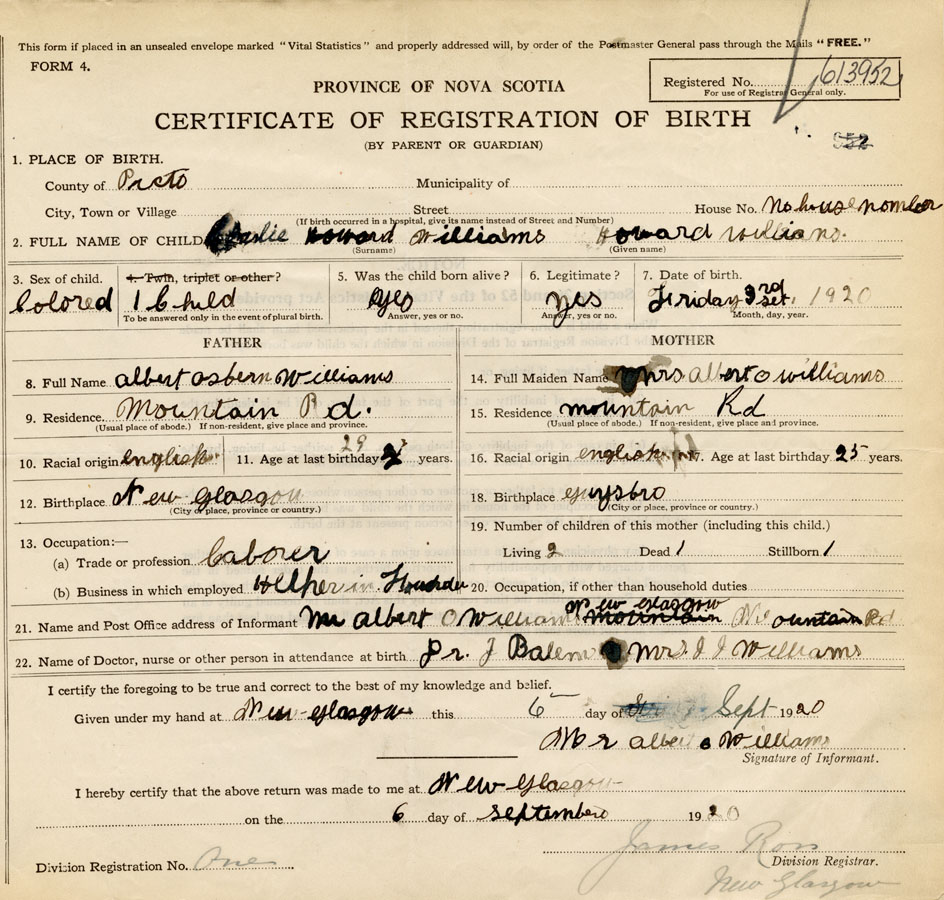 This form if placed in an unsealed envelope marked "Vital Statistics" and properly addressed will, by order of the Postmaster General pass through the Mails "FREE."
FORM 4.
Registered No. 613952
For use of Registrar General only.
PROVINCE OF NOVA SCOTIA
CERTIFICATE OF REGISTRATION OF BIRTH
(BY PARENT OR GUARDIAN)
652
1. PLACE OF BIRTH.
County of Picto Municipality of
City, Town or Village Street House No. no house nomber
(If birth occurred in a hospital, give its name instead of Street and Number)
2. FULL NAME OF CHILD Howard Williams Howard williams.
(Surname) (Given name)
3. Sex of child. 4. Twin, triplet or other? 5. Was the child born alive? 6. Legitimate? 7. Date of birth.
Colored 1 Child yes yes Friday 3rd set. 1920
To be answered only in the event of plural birth. Answer, yes or no. Answer, yes or no. Month, day, year.
FATHER MOTHER
8. Full Name albert osbern Williams 14. Full Maiden Name mrs albert o williams
9. Residence. Mountain Rd. 15. Residence mountain Rd
(Usual place of abode.) If non-resident, give place and province. (Usual place of abode.) If non-resident, give place and province.
10. Racial origin english 11. Age at last birthday 29 years. 16. Racial origin english 17. Age at last birthday 25 years.
12. Birthplace New glasgow 18. Birthplace guysbro
(City or place, province or country.) (City or place, province or country.)
19. Number of children of this mother (including this child.)
13. Occupation:— Living 2 Dead 1 Stillborn 1
(a) Trade or profession laborer
(b) Business in which employed in 20. Occupation, if other than household duties
21. Name and Post Office address of Informant Mr albert O Williams New glasgow mountain Mountain Rd
22. Name of Doctor, nurse or other person in attendance at birth Dr. J Balem Mrs J J Williams
I certify the foregoing to be true and correct to the best of my knowledge and belief.
Given under my hand at New-glasgow this 6 day of Sept 1920
Mr albert o Williams
Signature of Informant.
I hereby certify that the above return was made to me at New Glasgow
on the 6 day of september 1920
James Ross
Division Registration No. One Division Registrar.
New Glasgow